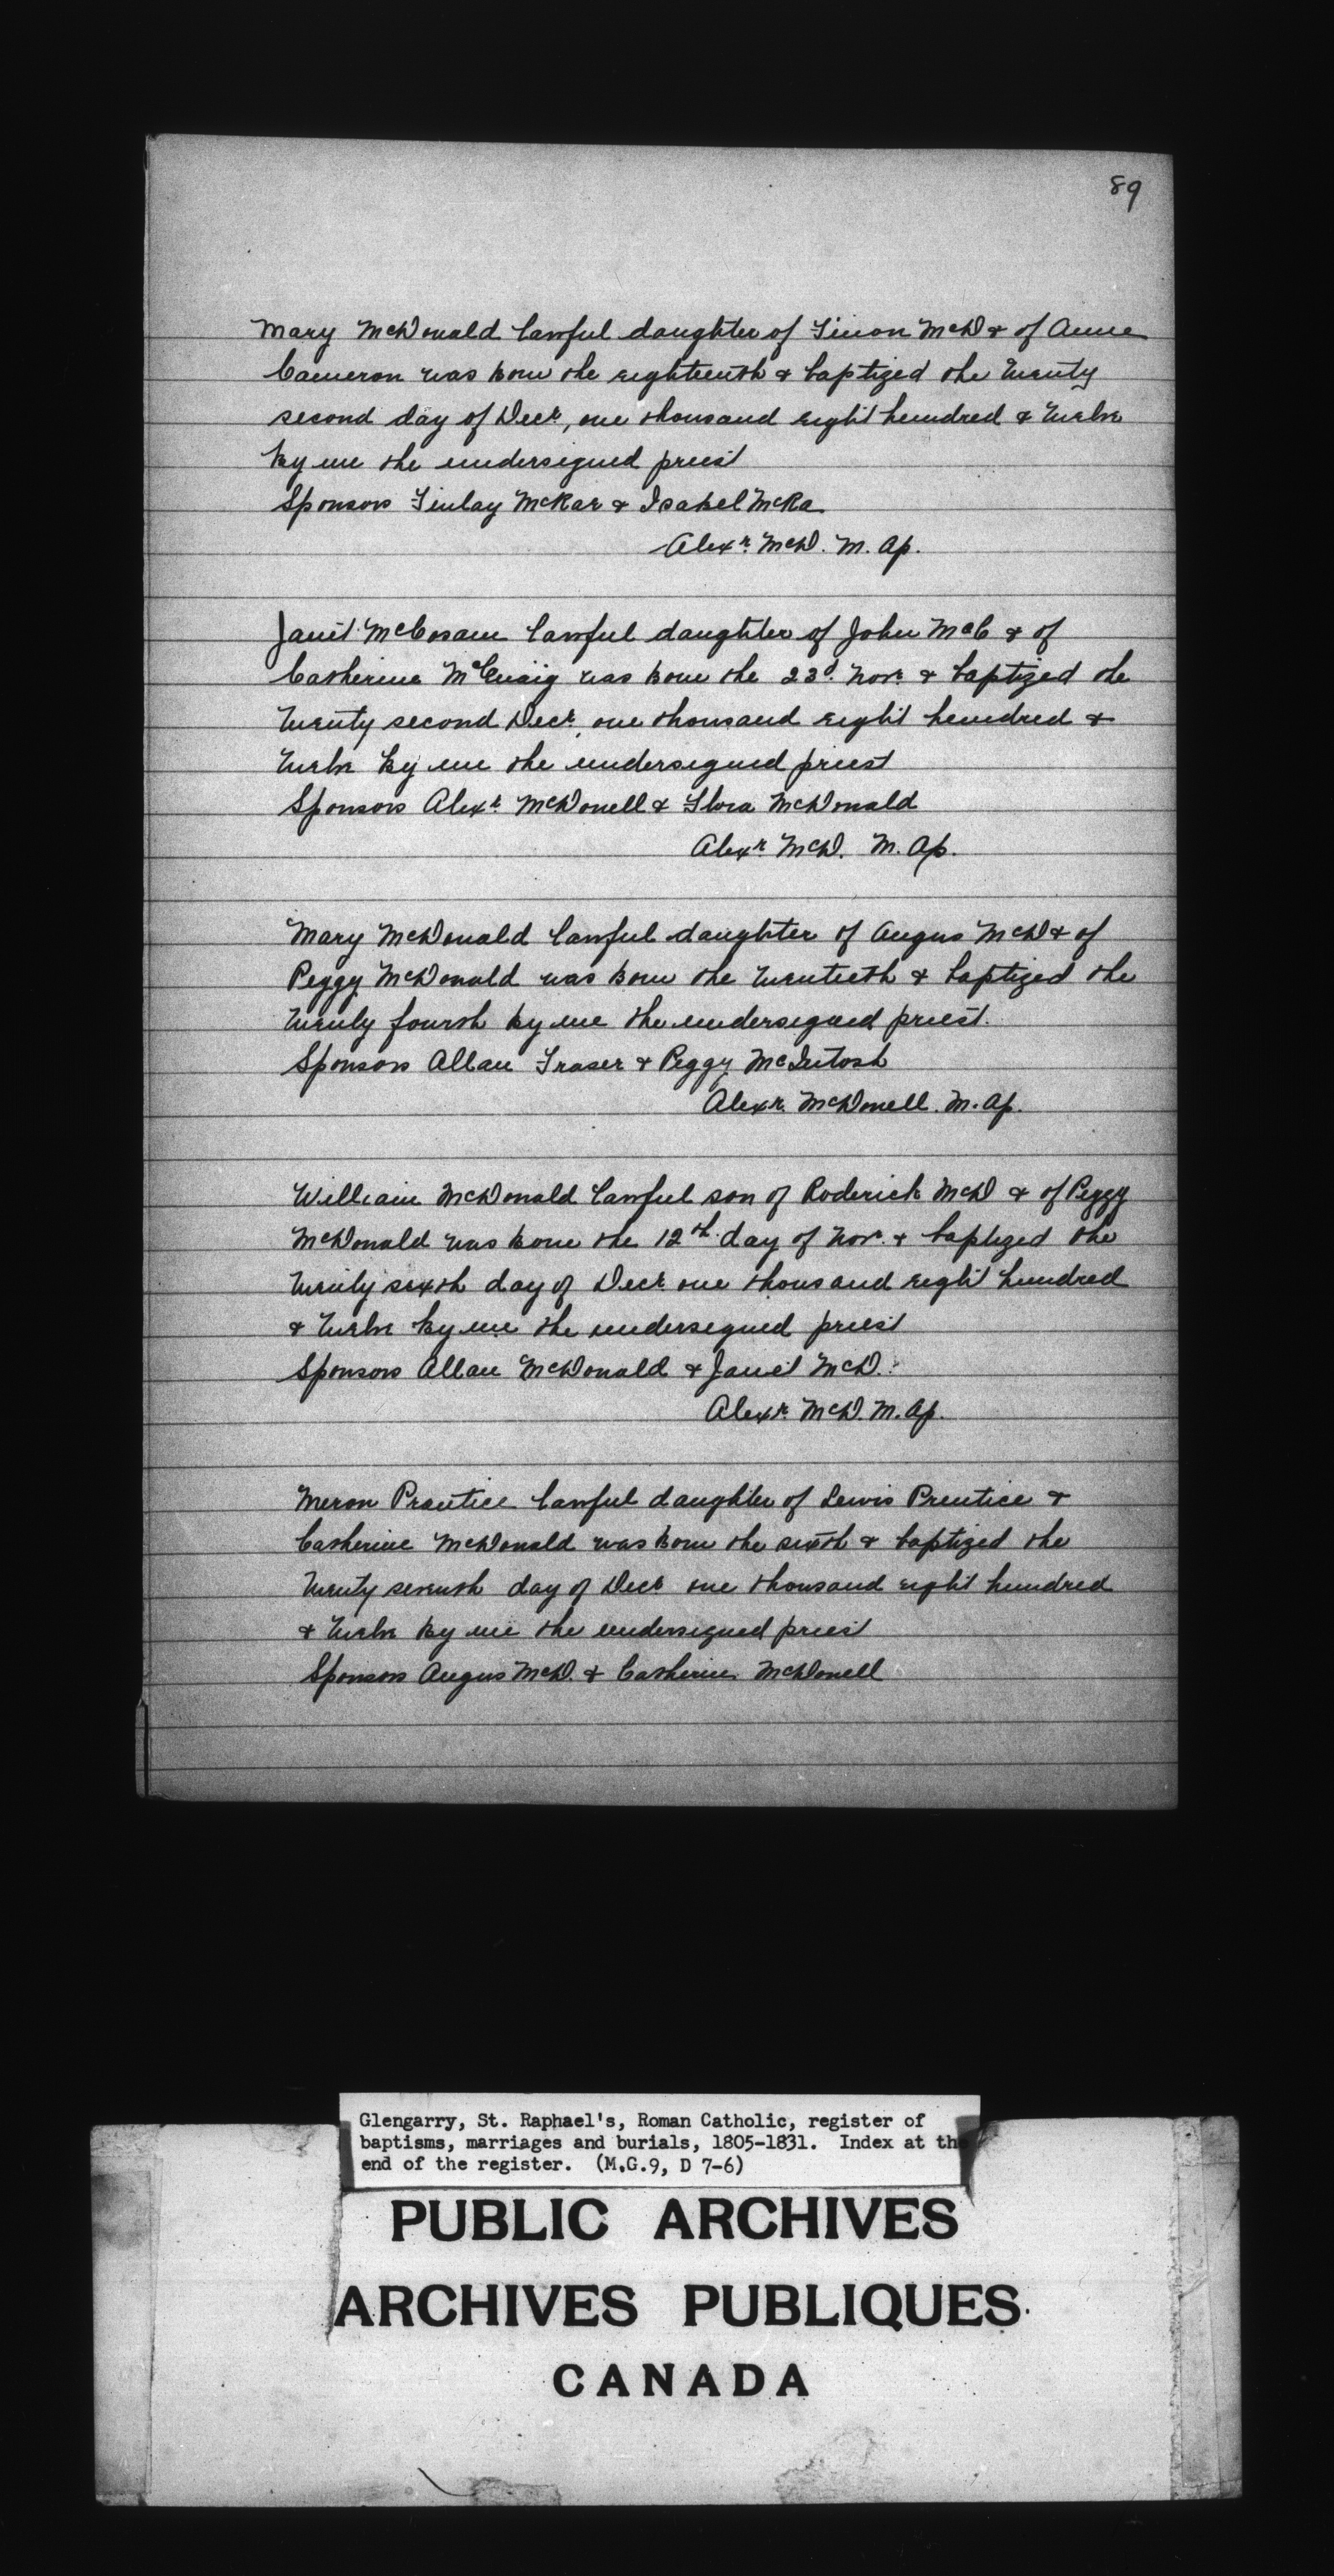 89
Mary McDonald lawful daughter of Simon McD & of Anne
Cameron was born the eighteenth & baptized the twenty
second day of Decr, one thousand eight hundred & twelve
by me the undersigned priest
Sponsors Finlay McRae & Isabel McRa
Alexr. McD. M. Ap.
Janet McCosam lawful daughter of John McC & of
Catherine McCuaig was born the 23d. Novr. & baptized the
twenty second Decr, one thousand eight hundred &
twelve by me the undersigned priest
Sponsors Alexr. McDonell & Flora McDonald
Alexr McD. M. Ap.
Mary McDonald lawful daughter of Angus McD & of
Peggy McDonald was born the twentieth & baptized the
twenty fourth by me the undersigned priest.
Sponsors Allan Fraser & Peggy McIntosh
Alexr. McDonell. M. Ap.
William McDonald lawful son of Roderick McD & of Peggy
McDonald was born the 12th. day of Novr. & baptized the
twenty sixth day of Decr. one thousand eight hundred
& twelve by me the undersigned priest
Sponsors Allan McDonald & Janet McD.
Alexr. McD. M. Ap.
Meron Prentice lawful daughter of Lewis Prentice &
Catherine McDonald was born the sixth & baptized the
twenty seventh day of Decr one thousand eight hundred
& twelve by me the undersigned priest
Sponsors Angus McD. & Catherine McDonell
Glengarry, St. Raphael's, Roman Catholic, register of
baptisms, marriages and burials, 1805-1831. Index at the
end of the register. (M.G.9, D 7-6)
PUBLIC ARCHIVES
ARCHIVES PUBLIQUES
CANADA